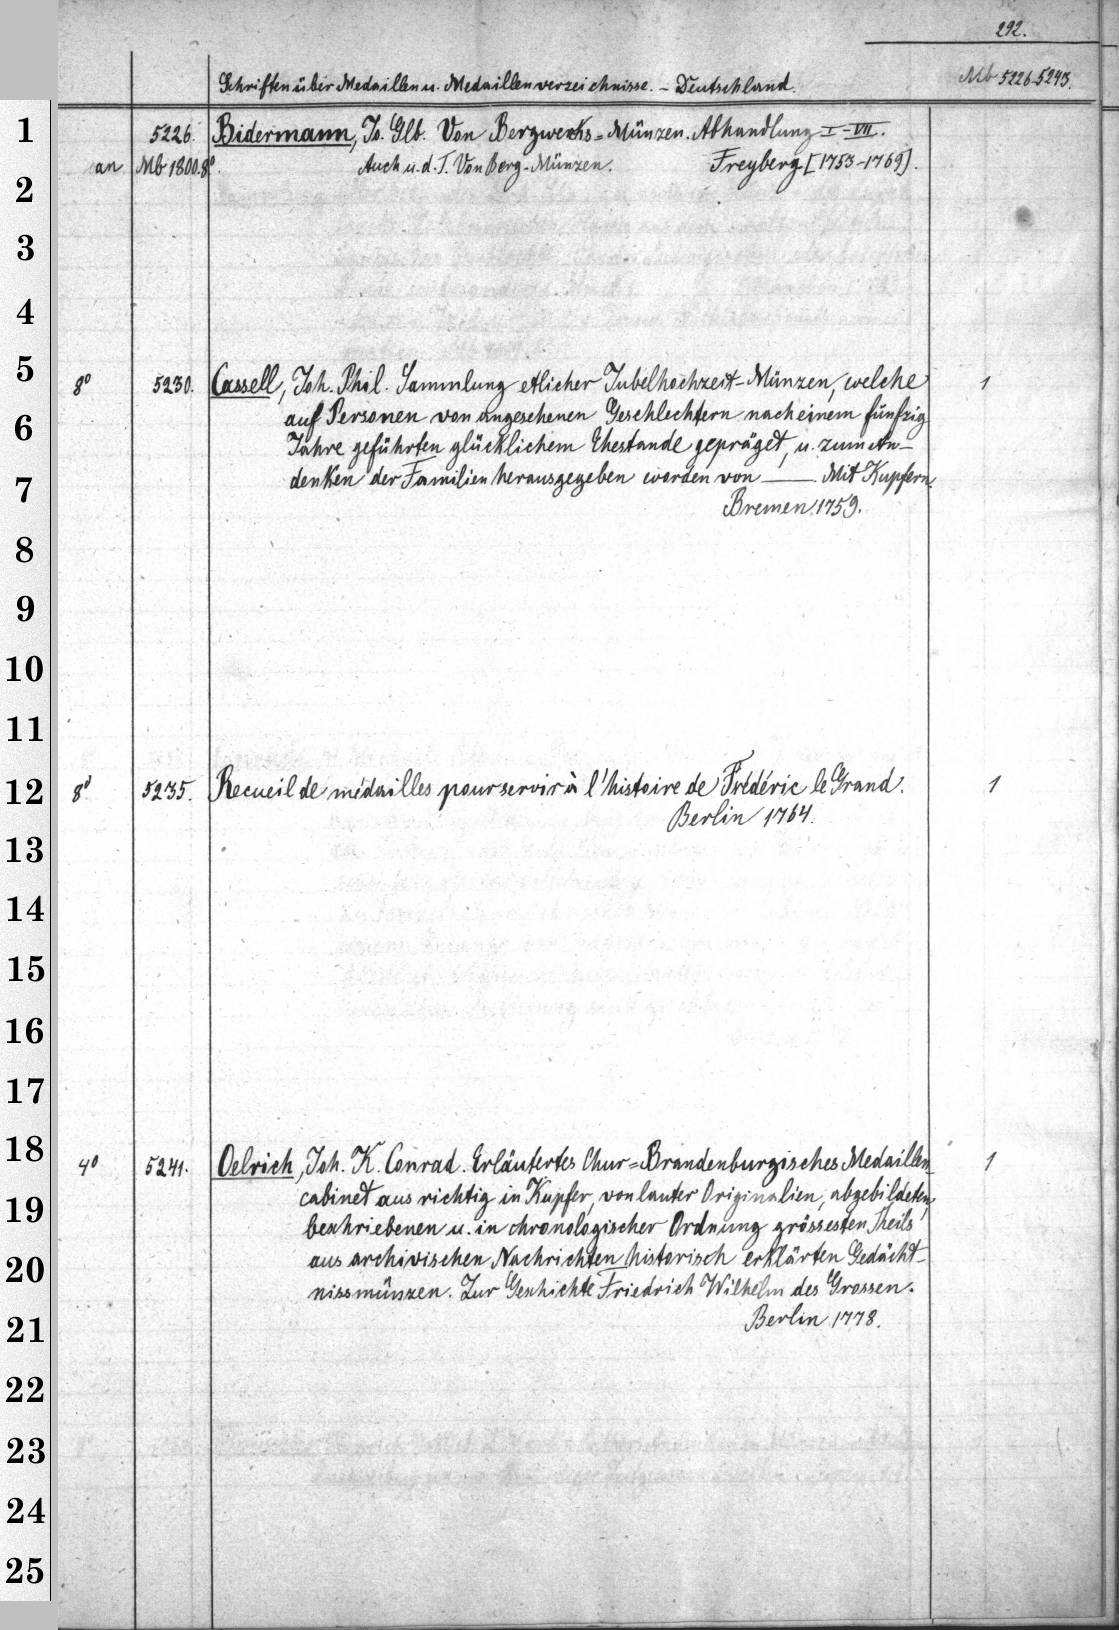 292.
Schriften über Medaillen u. Medaillenverzeichnisse. - Deutschland. Mb 5226-5243.
1 5226. Bidermann, Jo. Glb. Von Bergwerks=Münzen. Abhandlung I-VII.
an Mb 1800.8°. Auch u. d. T. Von Berg-Münzen. Freyberg [1753-1769].
2
3
4
5 8° 5230. Cassell, Joh. Phil. Sammlung etlicher Jubelhochzeit-Münzen, welche 1
6 auf Personen von angesehenen Geschlechtern nach einem fünfzig
Jahre geführten glücklichem Ehestande gepräget, u. zum An-
7 denken der Familien herausgegeben worden von —— Mit Kupfern.
Bremen 1759.
8
9
10
11
12 8° 5235. Recueil de médailles pour servir à l'histoire de Frédéric le Grand. 1
Berlin 1764.
13
14
15
16
17
18 4° 5241. Oelrich, Joh. K. Conrad. Erläutertes Chur=Brandenburgisches Medaillen- 1
cabinet aus richtig in Kupfer, von lauter Originalien, abgebildeten,
19 beschriebenen u. in chronologischer Ordnung grössesten Theils
20 aus archivischen Nachrichten historisch erklärten Gedächt-
nissmünzen. Zur Geschichte Friedrich Wilhelm des Grossen.
21 Berlin 1778.
22
23
24
25